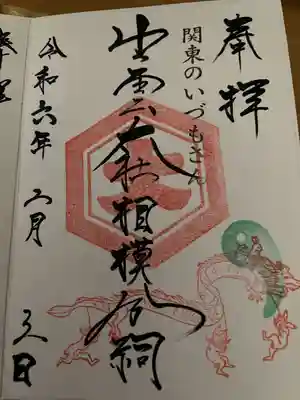 奉拝
関東のいづもさん
出雲大社相模分祠
令和六年二月
三日